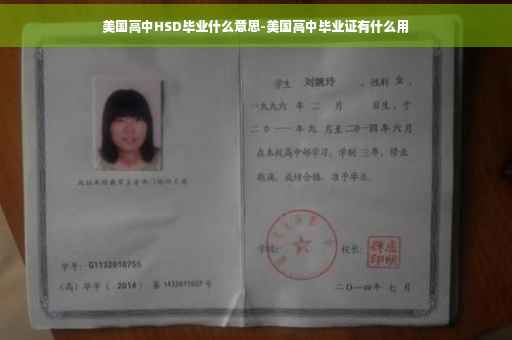 美国高中HSD毕业什么意思-美国高中毕业证有什么用
学生 刘婉玲 ，性别 女 ，
一九九六 年 二 月 日生，于
二〇一一 年 九 月至 二〇一四 年 六 月
在本校高中部学习，学制 三年，修业
期满，成绩合格，准予毕业。
学号： G1132010755
（高）毕字（ 2014 ）第 1432011027 号
学校：
校长：
二〇一四年 七 月